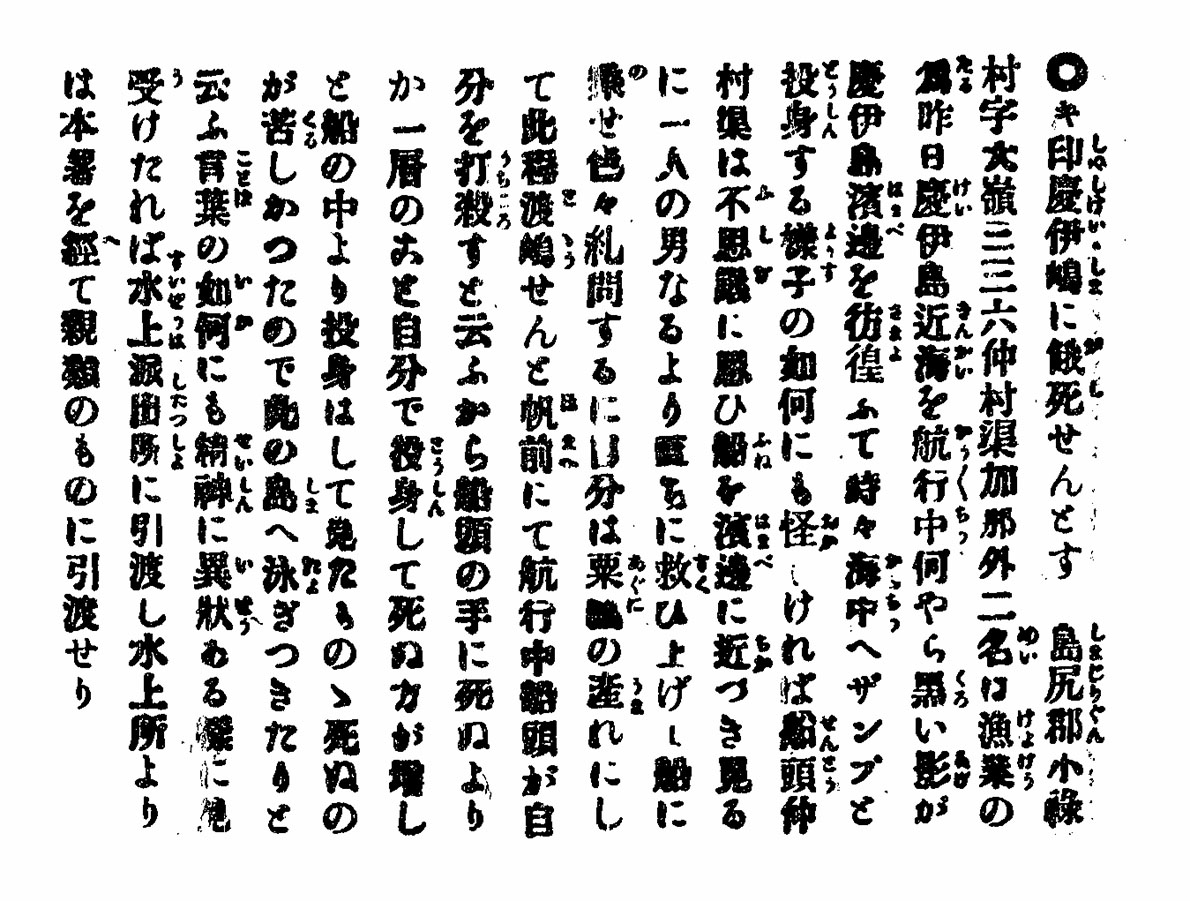 ◎キ印慶伊嶋に餓死せんとす 島尻郡小祿
村字大嶺三三六仲村渠加那外二名は漁業の
爲昨日慶伊島近海を航行中何やら黒い影が
慶伊島濱邊を彷徨ふて時々海中へザンブと
投身する樣子の如何にも怪しければ船頭仲
村渠は不思議に思ひ船を濱邊に近づき見る
に一人の男なるより直ちに救ひ上げし船に
乘せ色々糺問するに自分は粟國の產れにし
て此程渡嶋せんと帆前にて航行中船頭が自
分を打殺すと云ふから船頭の手に死ぬより
か一層のおと自分で投身して死ぬ方が增し
と船の中より投身はして見たものゝ死ぬの
が苦しかつたので此の島へ泳ぎつきたりと
云ふ言葉の如何にも精神に異狀ある樣に見
受けたれば水上派出所に引渡し水上所より
は本署を經て親類のものに引渡せり